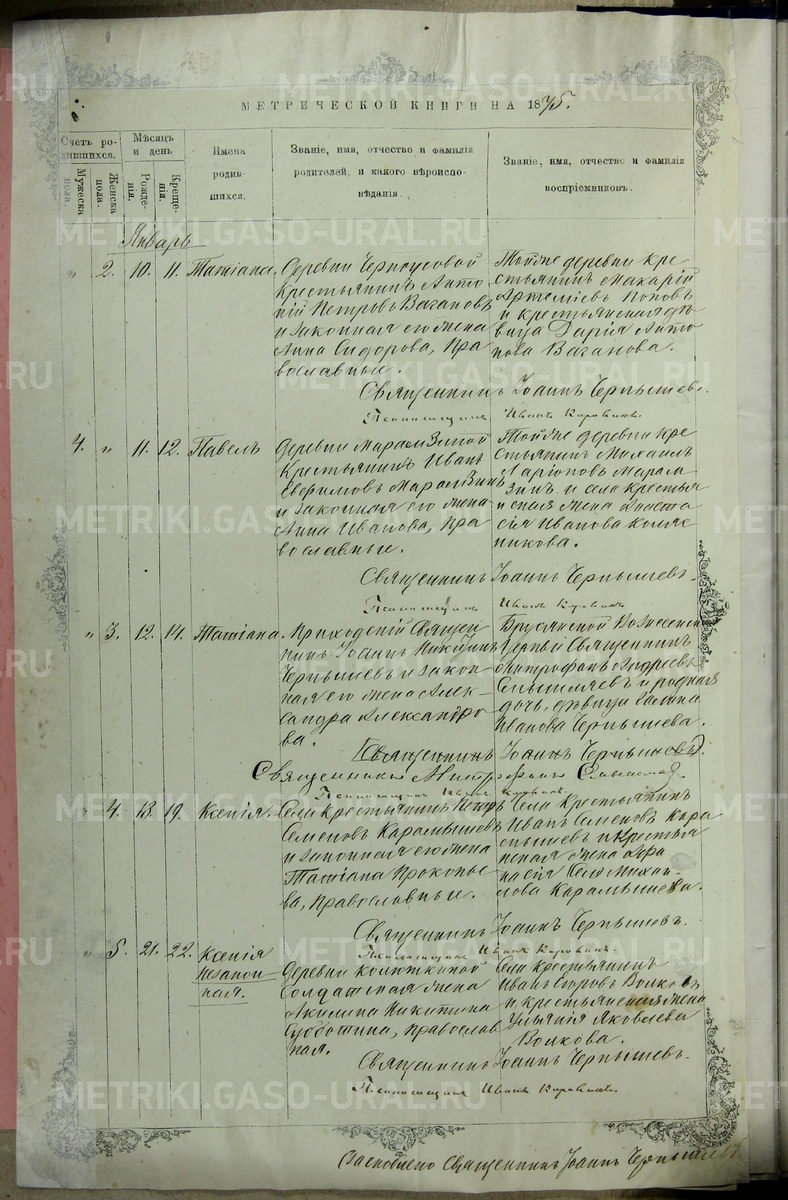 МЕТРИЧЕСКОЙ КНИГИ НА 1875.
Счетъ ро-
дившихся.
Мужеска
пола.
Женска
пола.
Мѣсяцъ
и день
Рожде-
нія.
Креще-
нія.
Имена
родив-
шихся.
Званіе, имя, отчество и фамилія
родителей, и какого вѣроиспо-
вѣданія.
Званіе, имя, отчество и фамилія
воспріемниковъ.
Январь
" 2. 10. 11. Татіана.
Деревни Черноусовой
крестьянинъ Анто
ній Петровъ Ваганов
и законная его жена
Анна Сидорова, Пра
вославные.
Тойже деревни кре
стьянинъ Макарій
Артеміевъ Поповъ
и крестьянская дѣ
вица Дарія Анто
нова Ваганова.
Священникъ Іоаннъ Чернышевъ.
Псаломщикъ Иванъ Коровинъ.
4. " 11. 12. Павелъ
Деревни Марамзиной
крестьянинъ Иванъ
Евфимовъ Марамзинъ
и законная его жена
Анна Иванова, Пра
вославные.
Тойже деревни кре
стьянинъ Михаилъ
Ларіоновъ Марам
зинъ и села крестья
нская жена Анаста
сія Иванова Коляс
никова.
Священникъ Іоаннъ Чернышевъ.
Псаломщикъ Иванъ Коровинъ
" 3. 12. 14. Татіана.
Приходскій Священ
никъ Іоаннъ
Чернышевъ и закон
ная его жена Алек-
сандра Александро
ва.
Брусянской Вознесенск
церкви Священникъ
Митрофанъ Андреевъ
и родная
дочь, дѣвица
Иванова Чернышева.
Священникъ Іоаннъ Чернышевъ.
Священникъ Митрофанъ
Псаломщикъ Иванъ Коровинъ.
" 4. 18. 19. Ксенія.
Села крестьянинъ Петръ
Семеновъ Карамышевъ
и законная его жена
Татіана Прокопье
ва, Православные.
Села крестьянинъ
Иванъ Семеновъ Кара
мышевъ и крестья
нская жена Афа
насія Михаи
лова Карамышева.
Священникъ Іоаннъ Чернышевъ.
Псаломщикъ Иванъ Коровинъ.
" 5. 21. 22. Ксенія
незакон
ная.
Деревни Колюткиной
Солдатская жена
Акилина Никитина
Субботина, Православ
ная.
Села крестьянинъ
Иванъ Волковъ
и крестьянская жена
Ульянія Яковлева
Волкова.
Священникъ Іоаннъ Чернышевъ.
Псаломщикъ Иванъ Коровинъ.
Священникъ Іоаннъ Чернышевъ
METRIKI.GASO-URAL.RU